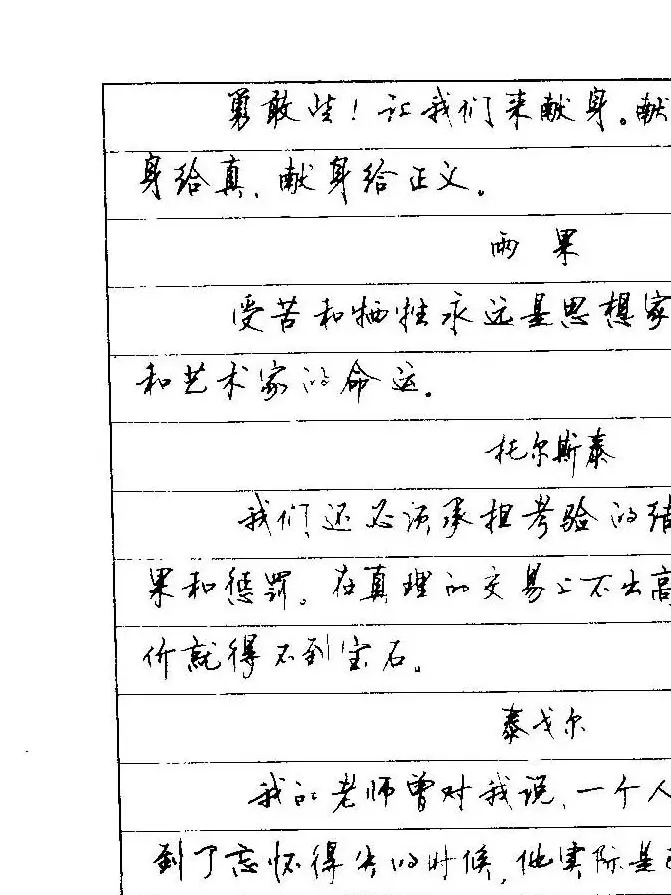 勇敢些！让我们来献身。献
身给真，献身给正义。
雨果
受苦和牺牲永远是思想家
和艺术家的命运。
托尔斯泰
我们还必须承担考验的结
果和惩罚。在真理的交易上不出高
价就得不到宝石。
泰戈尔
我的老师曾对我说，一个人
到了忘怀得失的时候，他实际是